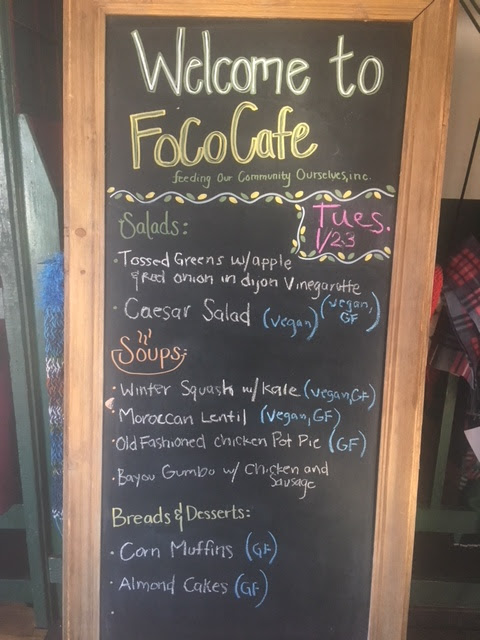 Welcome to
FoCo Cafe
feeding Our Community Ourselves, inc.
Tues.
1/23
Salads:
· Tossed Greens w/apple
& Red onion in dijon Vinegarette
(vegan, GF)
· Caesar Salad (vegan)
Soups:
· Winter Squash w/kale (vegan, GF)
· Moroccan Lentil (vegan, GF)
· Old Fashioned chicken Pot Pie (GF)
· Bayou Gumbo w/ Chicken and
Sausage
Breads & Desserts:
· Corn Muffins (GF)
· Almond Cakes (GF)
·